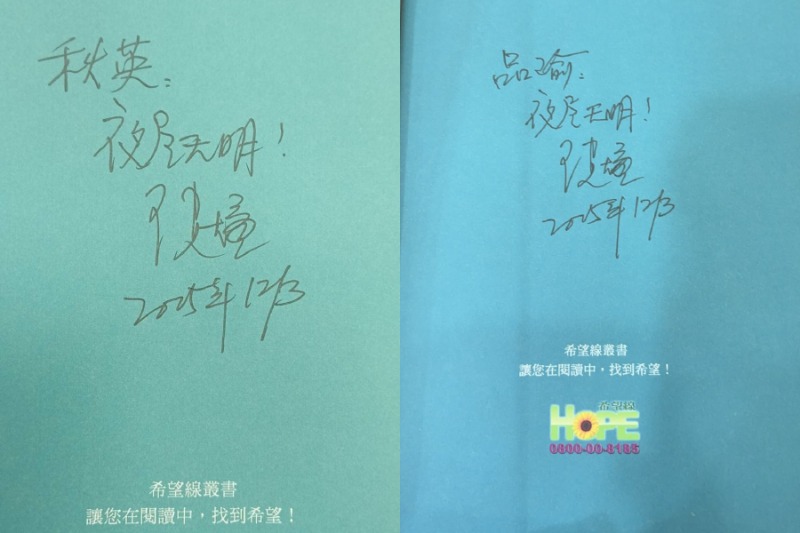 秋英：
夜盡天明！
2025年12/3
希望線叢書
讓您在閱讀中，找到希望！
品瑜：
夜盡天明！
2025年12/3
希望線叢書
讓您在閱讀中，找到希望！
希望線
HOPE
0800-00-8185